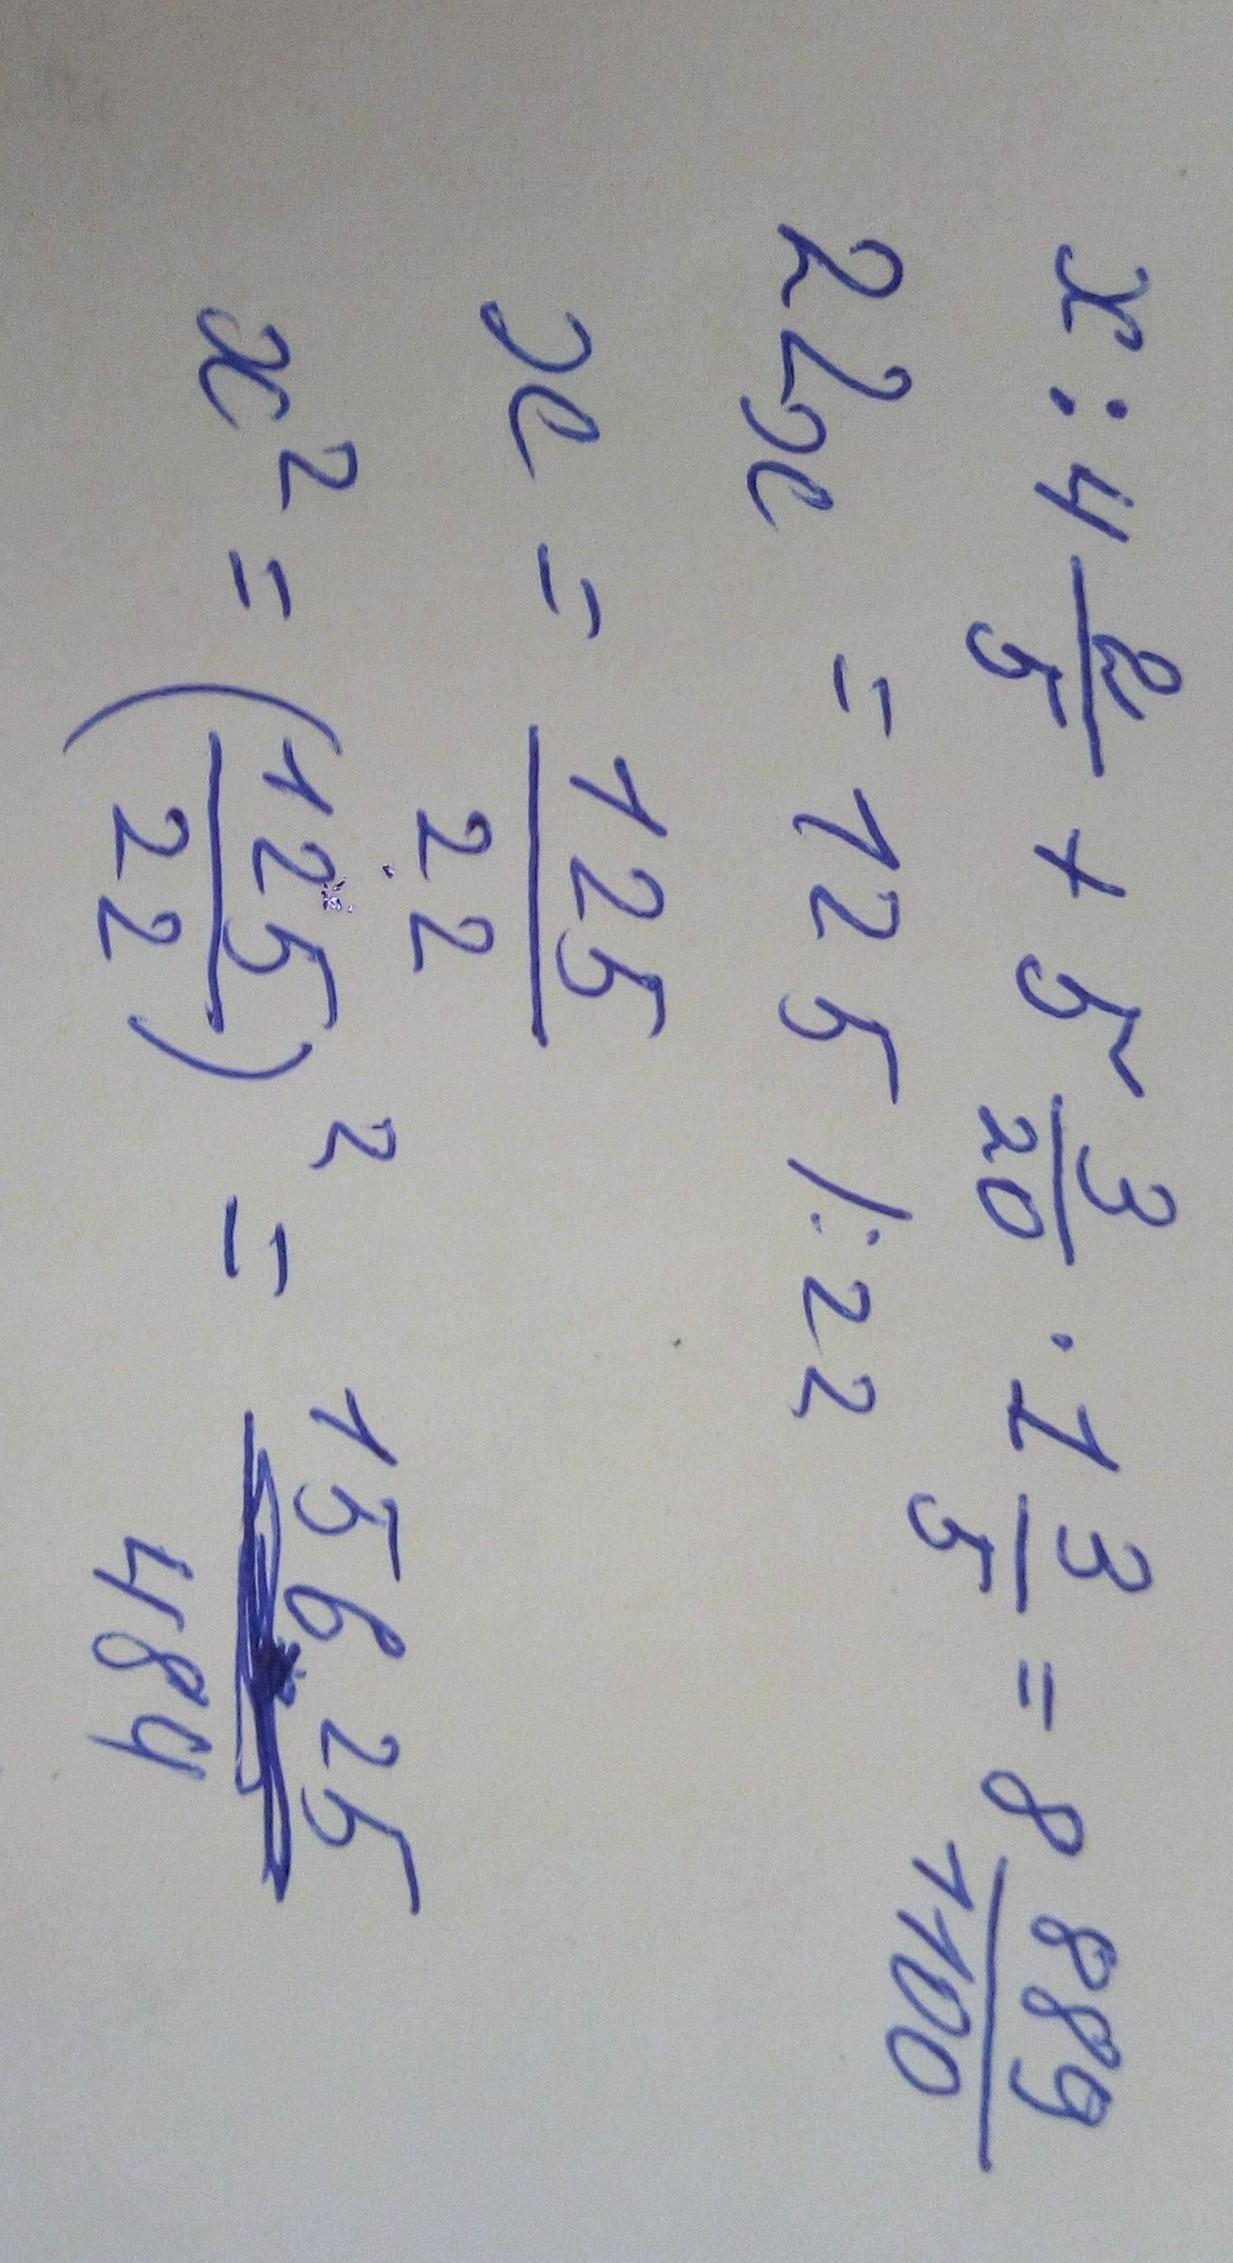 x : 4 2/5 + 5 3/20 · 1 3/5 = 8 889/1100
22x = 125 /:22
x = 125/22
x² = (125/22)² = 15625/484